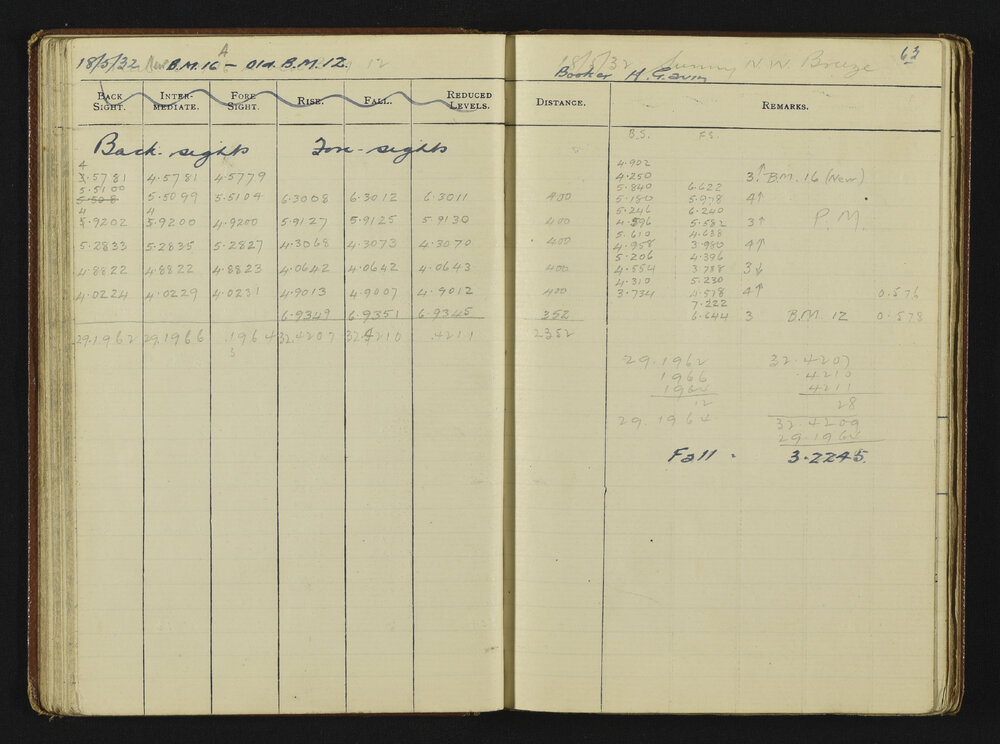 18/5/32 New B.M.16A - Old B.M.12. 12
BACK SIGHT. INTER-MEDIATE. FORE SIGHT. RISE. FALL. REDUCED LEVELS.
Back-sights Fore-sights
4
3.5781 4.5781 4.5779
5.5100
5.508 5.5099 5.5104 6.3008 6.3012 6.3011
4 4
5.9202 5.9200 4.9200 5.9127 5.9125 5.9130
5.2833 5.2835 5.2827 4.3068 4.3073 4.3070
4.8822 4.8822 4.8823 4.0642 4.0642 4.0643
4.0224 4.0229 4.0231 4.9013 4.9007 4.9012
6.9349 6.9351 6.9345
29.1962 29.1966 .1964 32.4207 32.4210 .4211
3
63
18/5/32 Sunny N.W. Breeze
Booker H. Gavin
DISTANCE. REMARKS.
B.S. F.S.
4.902
4.250 3↑ B.M. 16 (New)
5.840 6.622
400 5.180 5.978 4↑
5.246 6.240
400 4.596 5.582 3↑ P.M.
5.610 4.638
400 4.958 3.980 4↑
5.206 4.396
400 4.554 3.738 3↓
4.310 5.230
400 3.734 4.578 4↑ 0.576
7.222
352 6.644 3 B.M. 12 0.578
2352
29.1962 32.4207
1966 .4210
1964 4211
12 28
29.1964 32.4209
29.1964
Fall - 3.2245.